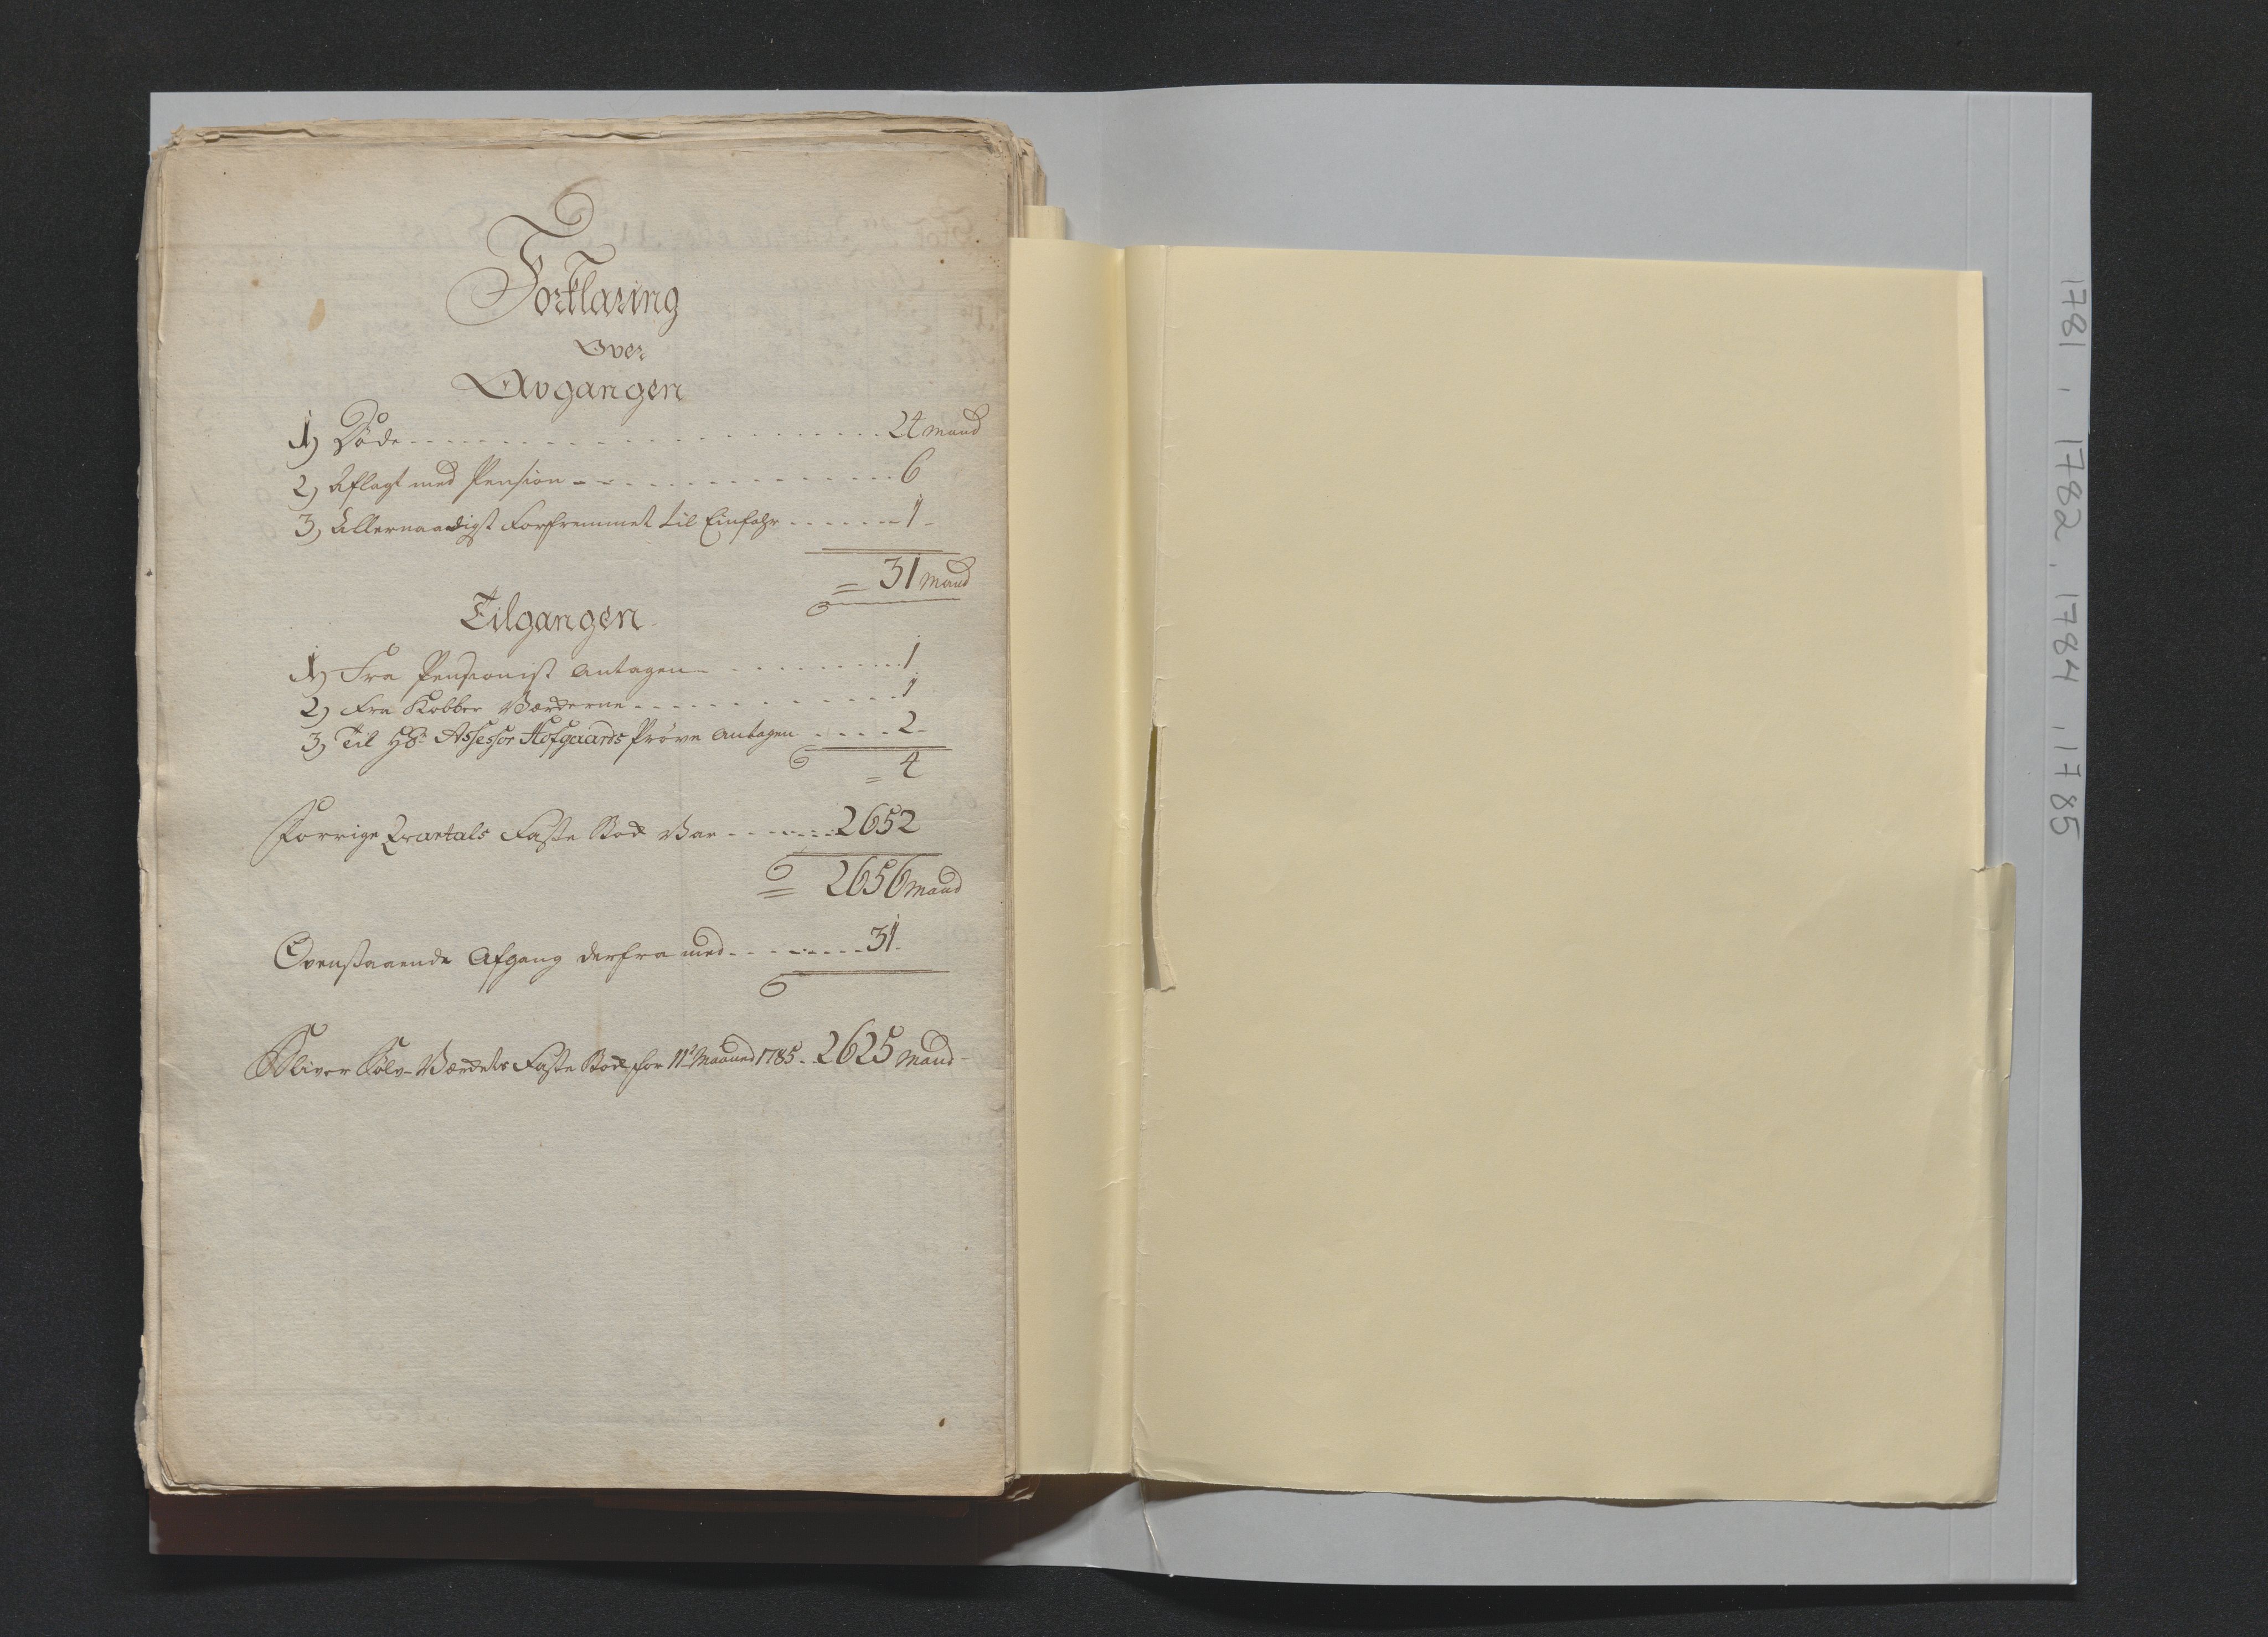 Forklaring
Over
Avgangen
1) Døde - - - 24 mand
2) Aflagt med Pension - - - 6
3) Allernaadigst Forfremmet til Einfahr - - - 1 -
= 31 mand
Tilgangen
1) Fra Pensionist antagen - - - 1
2) Fra Kobber Værkerne - - - 1
3) Til Hr Assessor Hofgaards Prøve antagen - - - 2 -
= 4
Forrige Qvartals Faste Stok Var - - - 2652
= 2656 mand
Ovenstaaende Afgang derfra med - - - 31 -
Bliver Sølv-Værkets Faste Stok for 11te Maaned 1785 - 2625 mand
1781, 1782, 1784, 1785